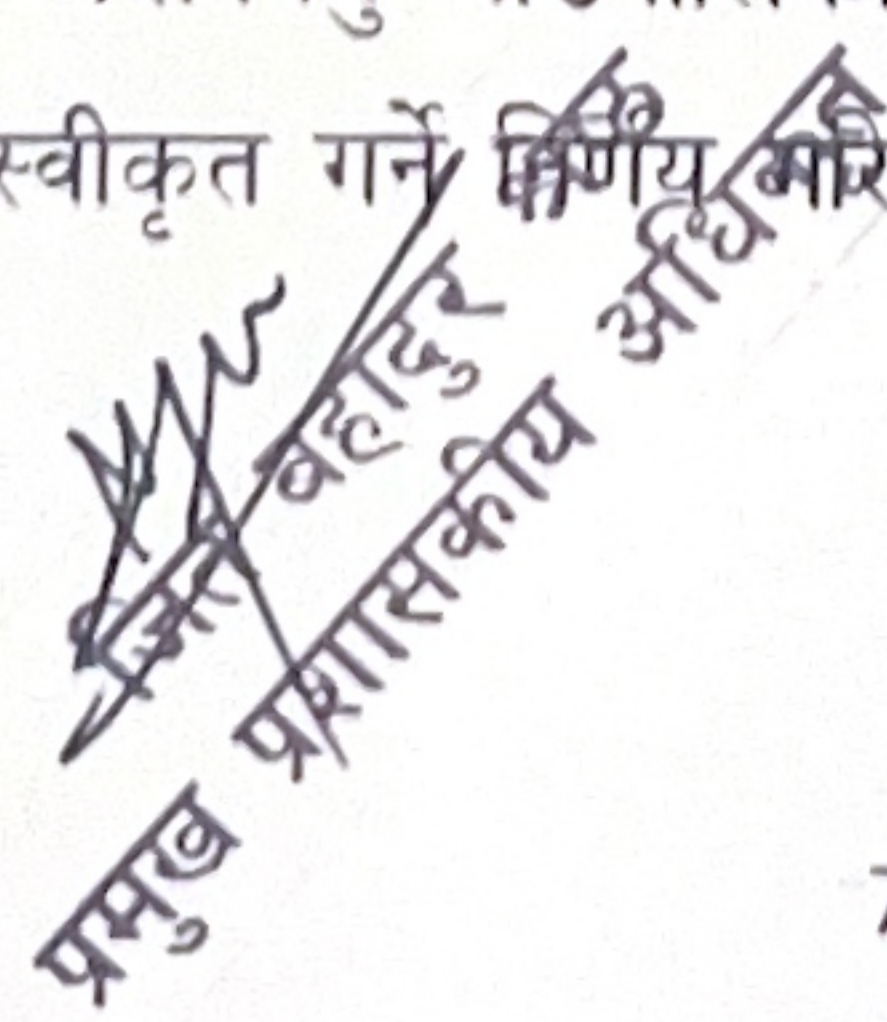 स्वीकृत गर्ने निर्णय गरि
जित बहादुर
प्रमुख प्रशासकीय अधि